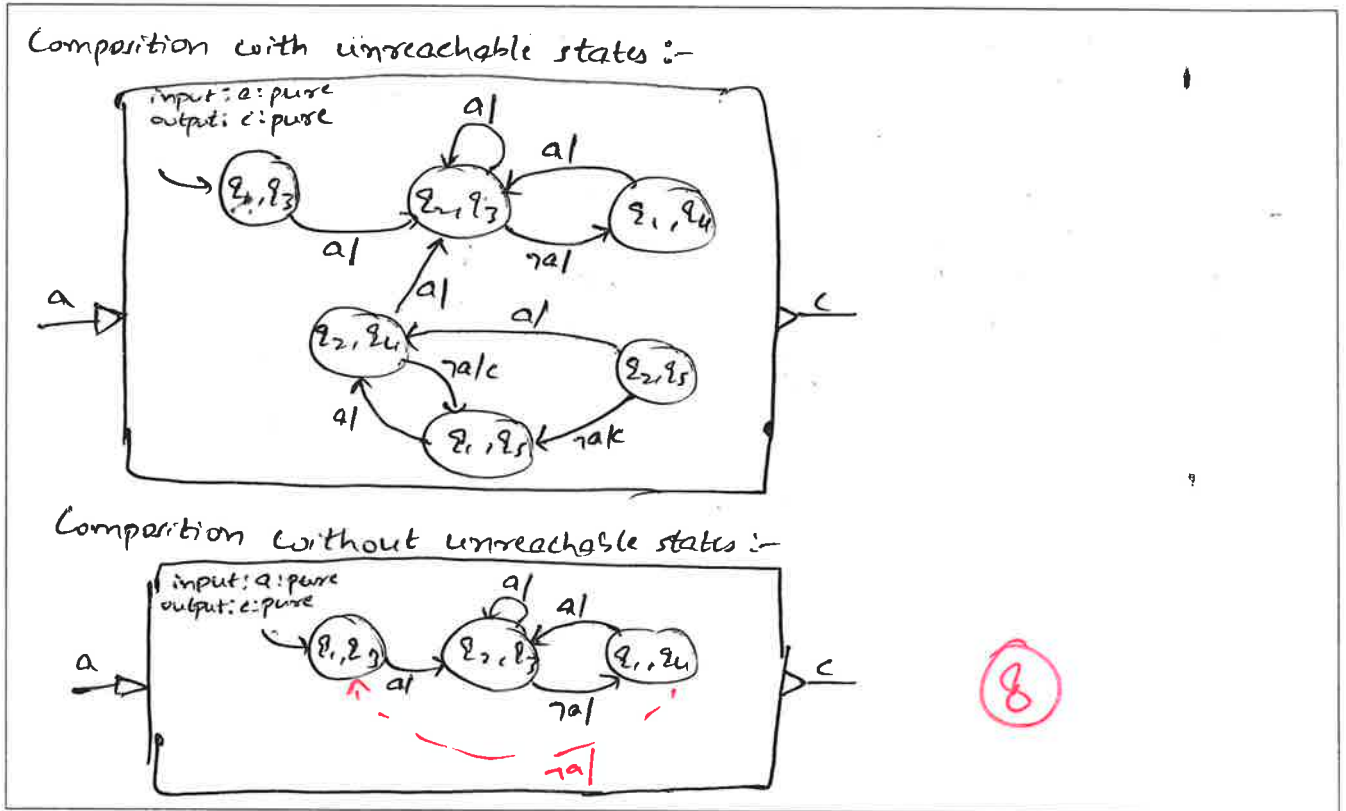 Composition with unreachable states :-
input: a: pure
output: c: pure
a/
a/
q1, q3
q2, q3
q1, q4
a/
¬a/
a
a/
a/
c
q2, q4
¬a/c
q2, q5
a/
q1, q5
¬a/c
Composition without unreachable states :-
input: a: pure
output: c: pure
a/
a/
a
q1, q3
q2, q3
q1, q4
c
a/
¬a/
¬a/
8